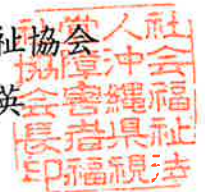 祉協会
英
社会福祉法
人沖縄県視
覚障害者福
祉協会長印